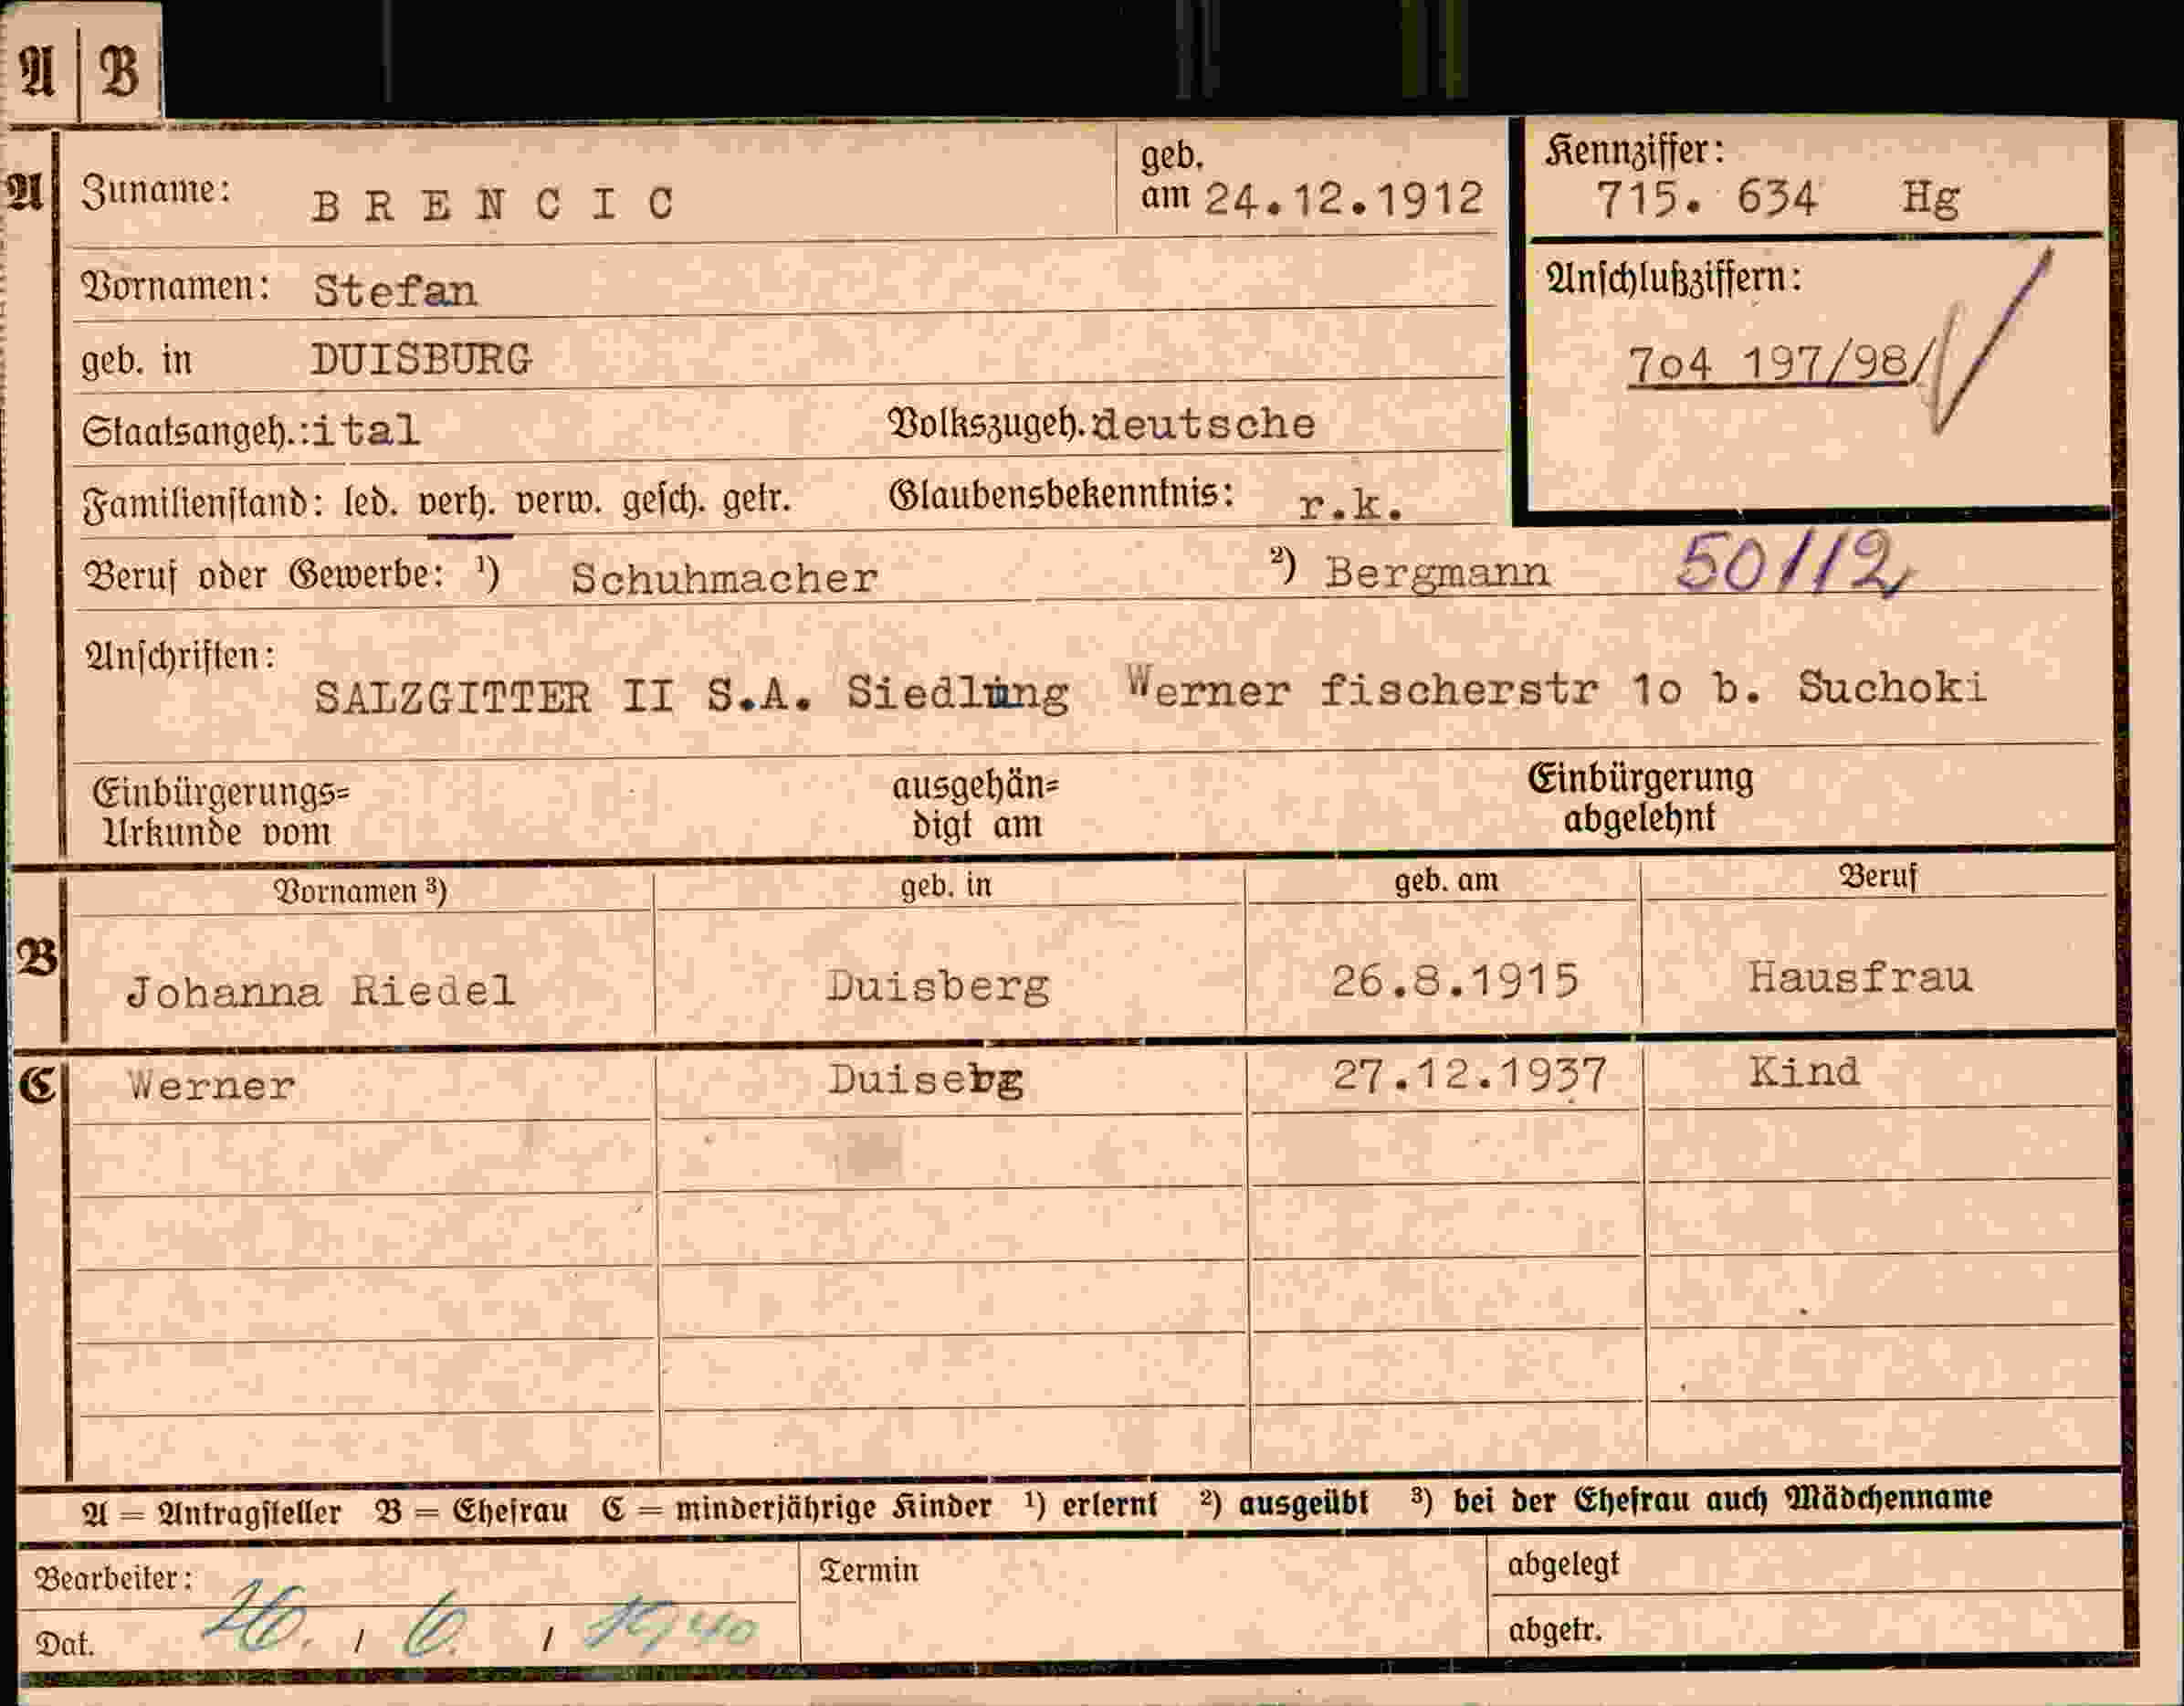 A | B
A Zuname: BRENCIC geb. am 24.12.1912
Kennziffer: 715. 634 Hg
Vornamen: Stefan
Anschlußziffern:
7o4 197/98/
geb. in DUISBURG
Staatsangeh.: ital Volkszugeh. deutsche
Familienstand: led. verh. verw. gesch. getr. Glaubensbekenntnis: r.k.
Beruf oder Gewerbe: ¹) Schuhmacher ²) Bergmann 50112
Anschriften:
SALZGITTER II S.A. Siedlung Werner fischerstr 1o b. Suchoki
Einbürgerungs=
Urkunde vom
ausgehän=
digt am
Einbürgerung
abgelehnt
Vornamen ³) geb. in geb. am Beruf
B Johanna Riedel Duisberg 26.8.1915 Hausfrau
C Werner Duisebg 27.12.1937 Kind
A = Antragsteller B = Ehefrau C = minderjährige Kinder ¹) erlernt ²) ausgeübt ³) bei der Ehefrau auch Mädchenname
Bearbeiter:
Dat. 26. / 6. / 1940
Termin
abgelegt
abgetr.